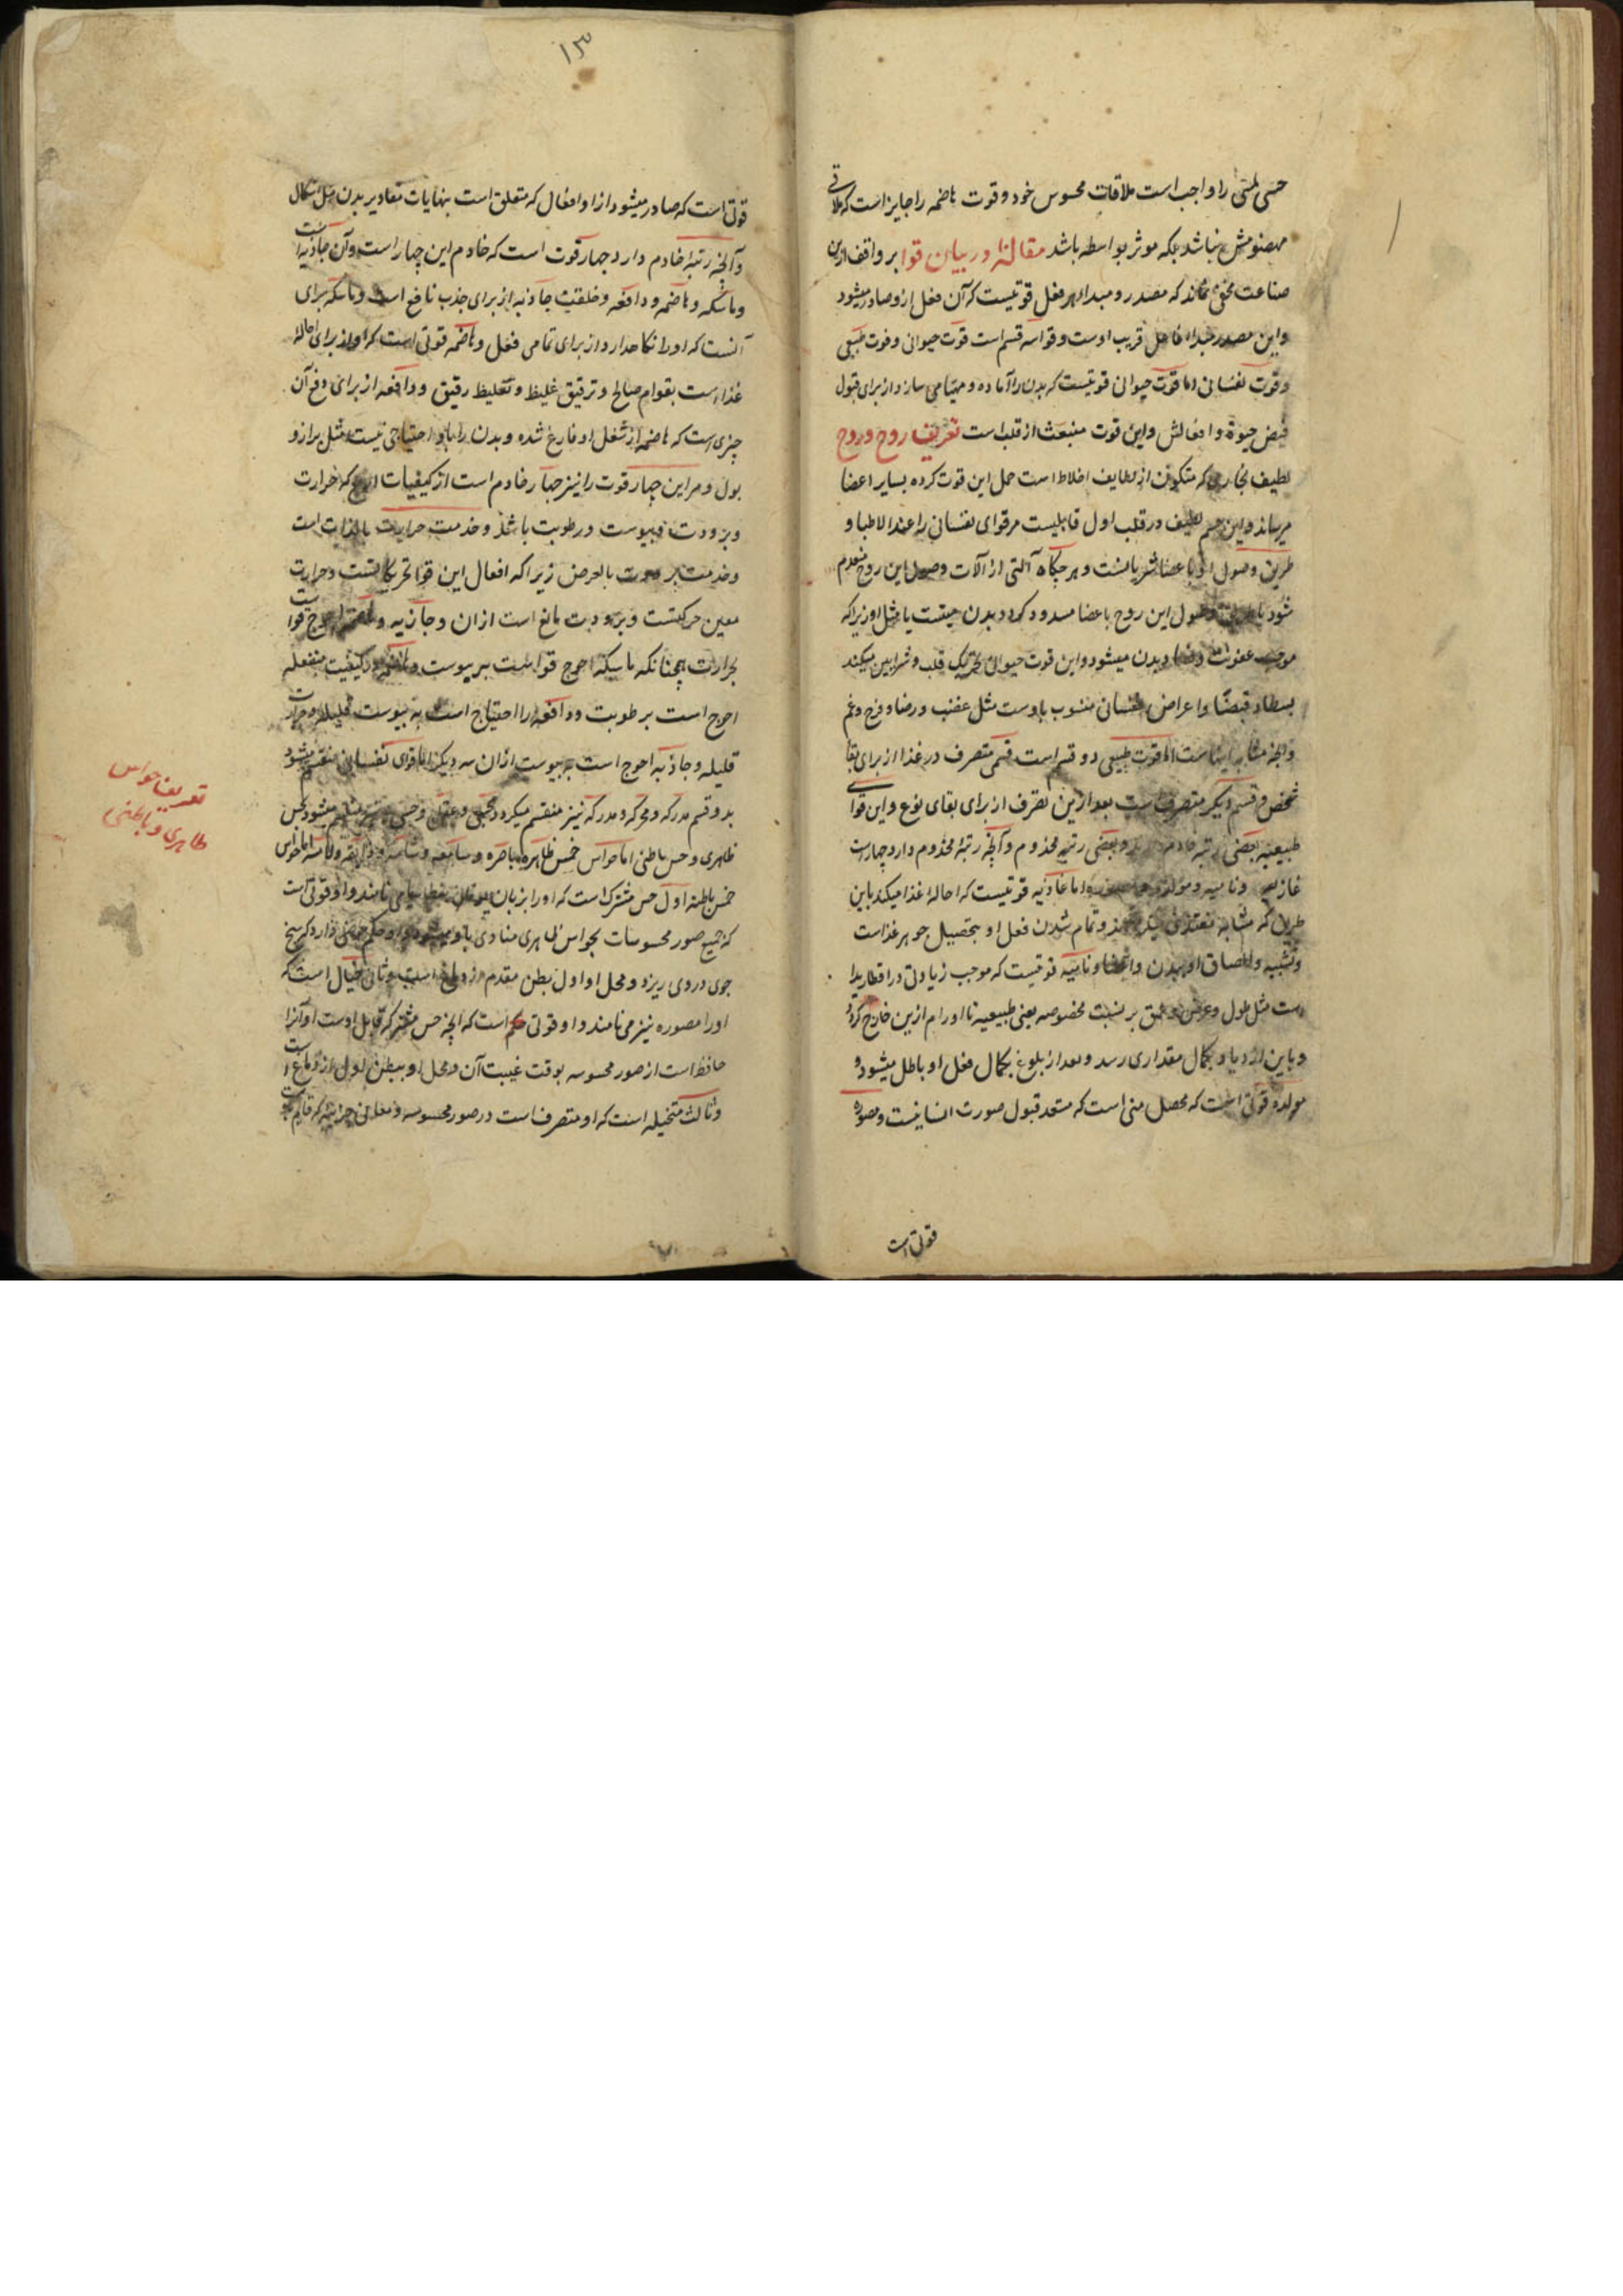 حسی لمسی را واجب است ملاقات محسوس خود و قوت هاضمه را جایز است که ملاقی
مهضومش نباشد بلکه موثر بواسطه باشد مقالة در بیان قوا بر واقف ازین
صناعت مخفی نماند که مصدر و مبداء هر فعل قوتیست که آن فعل ازو صادر میشود
و این مصدر مبداء فاعل قریب اوست و قوا سه قسم است قوت حیوانی و قوت طبیعی
و قوت نفسانی اما قوت حیوانی قوتیست که بدن را آماده و مهیا می سازد از برای قبول
فیض حیوة و افعالش و این قوت منبعث از قلب است تعریف روح و روح
لطیف بخاری که متکون از لطایف اخلاط است حمل این قوت کرده بسایر اعضا
میرساند و این جسم لطیف در قلب اول قابلیست مر قوای نفسانی را عند الاطبا و
طریق وصول او با عضا شریانست و هر جگاه آلتی از آلات وصول این روح منعدم
شود یا وصول این روح باعضا مسدود کردد بدن میتست یا مثل او زیراکه
موجب عفونت و بدن میشود و این قوت حیوانی تحریک قلب و شرایین میکند
بسطا و قبضا و اعراض نفسانی منسوب باوست مثل غضب و رضا و فرح و غم
و آنچه مشابه اینهاست اما قوت طبیعی دو قسم است قسمی متصرف در غذا از برای بقا
شخص و قسم دیگر متصرف است بعد ازین تصرف از برای بقای نوع و این قوا
طبیعیه بعضی رتبه خادم دارد و بعضی رتبه مخدوم و آنچه رتبهٔ مخدوم دارد چهارست
غاذیه و نامیه و مولده و مصوره اما غاذیه قوتیست که احاله غذا میکند باین
طریق که مشابه مغتذی میکرد و تمام شدن فعل او بتحصیل جوهر غذاست
و تشبیه و الصاق او ببدن و اعضا و نامیه قوتیست که موجب زیادتی در اقطار بدا
ست مثل طول و عرض و عمق بر نسبت مخصوصه یعنی طبیعیه تا اورام ازین خارج کردد
و باین ازدیاد بکمال مقداری رسد و بعد از بلوغ بکمال فعل او باطل میشود و
مولده قوتی است که محصل منی است که مستعد قبول صورت انسانیست و مصوره
قوتی است
۱۳
قوتی است که صادر میشود ازا و افعال که متعلق است بنهایات مقادیر بدن مثل اشکال
و آنچه رتبهٔ خادم دارد چهار قوت است که خادم این چهار است و آن جاذبه است
و ماسکه و هاضمه و دافعه و خلقیت جاذبه از برای جذب نافع است و ماسکه برای
آنست که او را نکاه دارد از برای تمامی فعل و هاضمه قوتی است که او از برای احاله
غذا است بقوام صالح و ترقیق غلیظ و تغلیظ رقیق و دافعه از برای دفع آن
چیزی است که هاضمه از شغل او فارغ شده و بدن را باو احتیاجی نیست مثل براز و
بول و مر این چهار قوت را نیز چهار خادم است از کیفیات اربع که حرارت
و برودت و یبوست و رطوبت باشد و خدمت حرارت بالذات است
و خدمت برودت بالعرض زیرا که افعال این قوا تحریکاتست و حرارت
معین حرکتست و برودت مانع است ازان و جاذبه و هاضمه احوج قواست
بحرارت همچنانکه ماسکه احوج قواست بر یبوست و هاضمه از کیفیت منفعله
احوج است برطوبت و دافعه را احتیاج است به یبوست قلیله و حرارت
قلیله و جاذبه احوج است به یبوست ازان سه دیکر اما قوای نفسانی منقسم میشود
بدو قسم مدرکه و محرکه و مدرکه نیز منقسم میکردد بحس و عقل و حس منقسم میشود بحس
ظاهری و حس باطنی اما حواس خمس ظاهره باصره و سامعه و شامه و ذایقه و لامسه اما حواس
خمس باطنه اول حس مشترک است که او را بزبان یونان بنطاسیا می نامند و او قوتی است
که جمیع صور محسوسات بحواس ظاهری منادی باو میشود و او حکم حوضی دارد که پنج
جوی در وی ریزد و محل او اول بطن مقدم از دماغ است و ثانی خیال است که
او را مصوره نیز می نامند و او قوتی است که آنچه حس مشترک قابل اوست او آنرا
حافظ است از صور محسوسه بوقت غیبت آن و محل او ببطن اول از دماغ است
و ثالث متخیله است که او متصرف است در صور محسوسه و معانی جزئیه که قایم
تعریف حواس
ظاهری و باطنی